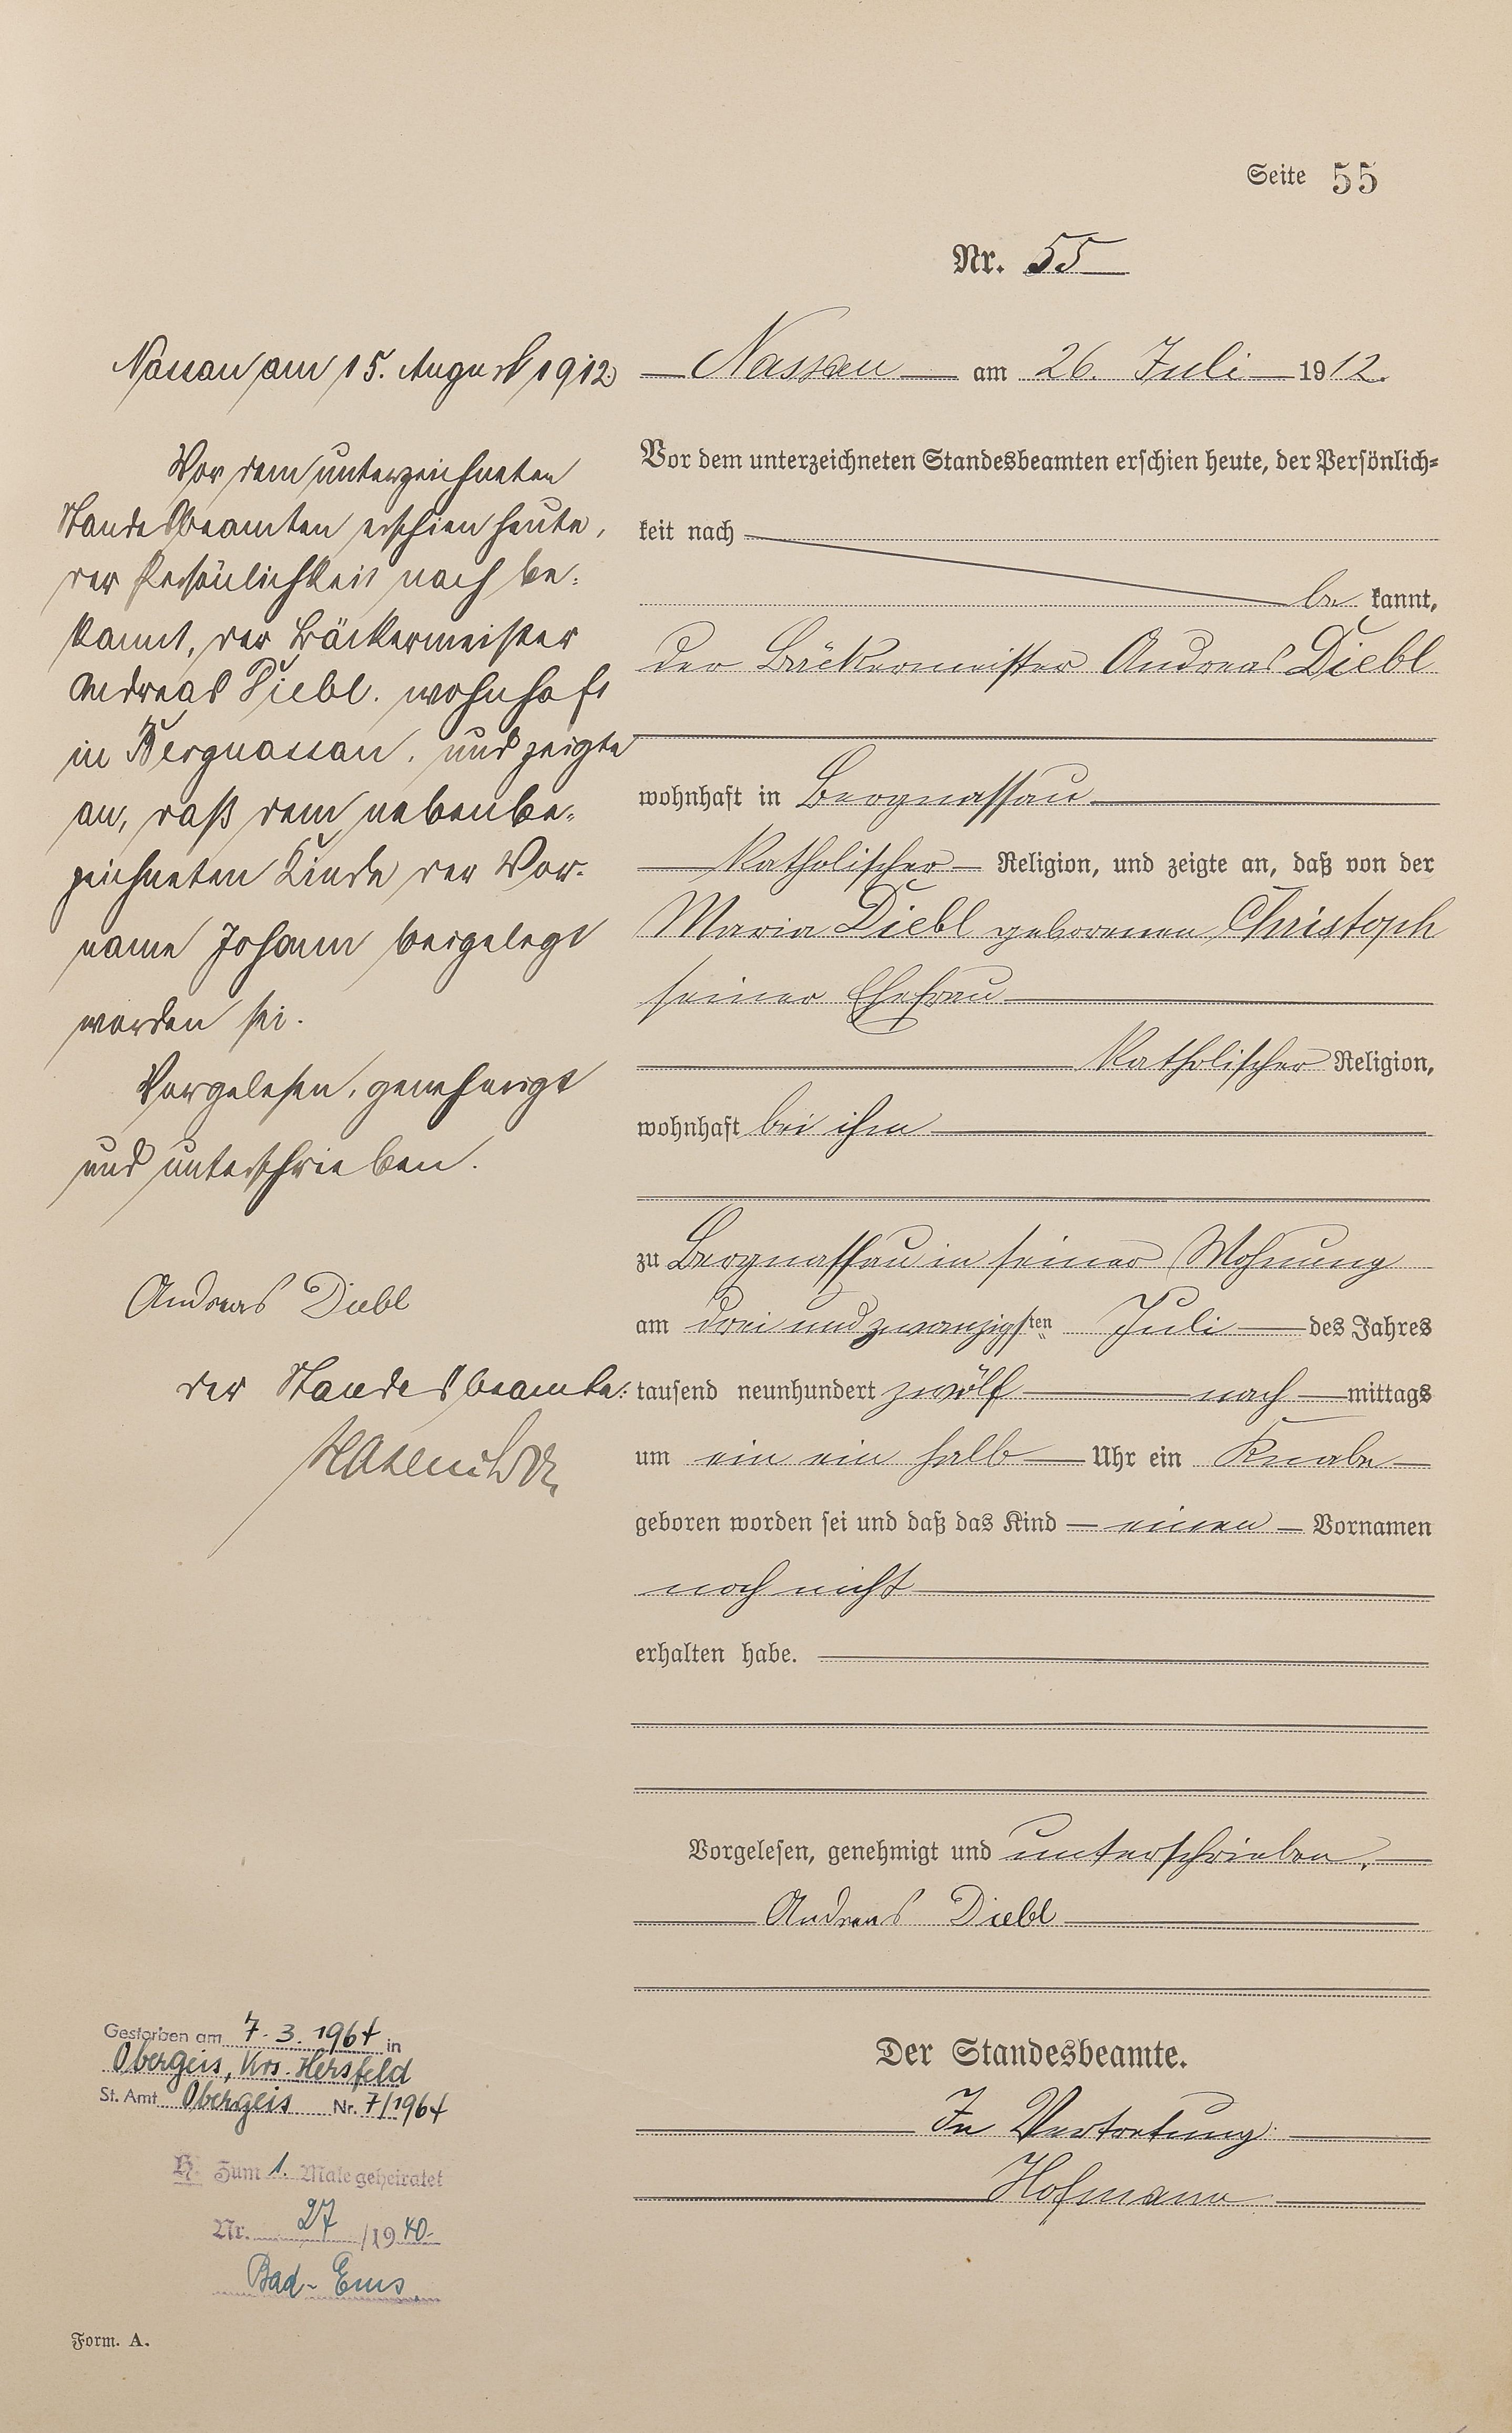 Seite 55
Nr. 55
Nassau am 15. August 1912.
Vor dem unterzeichneten
Standesbeamten erschien heute,
der Persönlichkeit nach be-
kannt, der Bäckermeister
Andreas Diebl, wohnhaft
in Bergnassau, und zeigte
an, daß dem nebenbe-
zeichneten Kinde der Vor-
name Johann beigelegt
worden sei.
Vorgelesen, genehmigt
und unterschrieben.
Andreas Diebl
der Standesbeamte:
Nassau am 26. Juli 1912.
Vor dem unterzeichneten Standesbeamten erschien heute, der Persönlich-
keit nach
be kannt,
der Bäckermeister Andreas Diebl
wohnhaft in Bergnassau
katholischer Religion, und zeigte an, daß von der
Maria Diebl geborenen Christoph
seiner Ehefrau
katholischer Religion,
wohnhaft bei ihm
zu Bergnassau in seiner Wohnung
am drei und zwanzigsten Juli des Jahres
tausend neunhundert zwölf nach mittags
um ein ein halb Uhr ein Knabe
geboren worden sei und daß das Kind einen Vornamen
noch nicht
erhalten habe.
Vorgelesen, genehmigt und unterschrieben.
Andreas Diebl
Der Standesbeamte.
In Vertretung
Hofmann
Gestorben am 7.3.1964 in
Obergeis, Krs. Hersfeld
St. Amt Obergeis Nr. 7/1964
H. Zum 1. Male geheiratet
Nr. 27 /1940
Bad-Ems
Form. A.